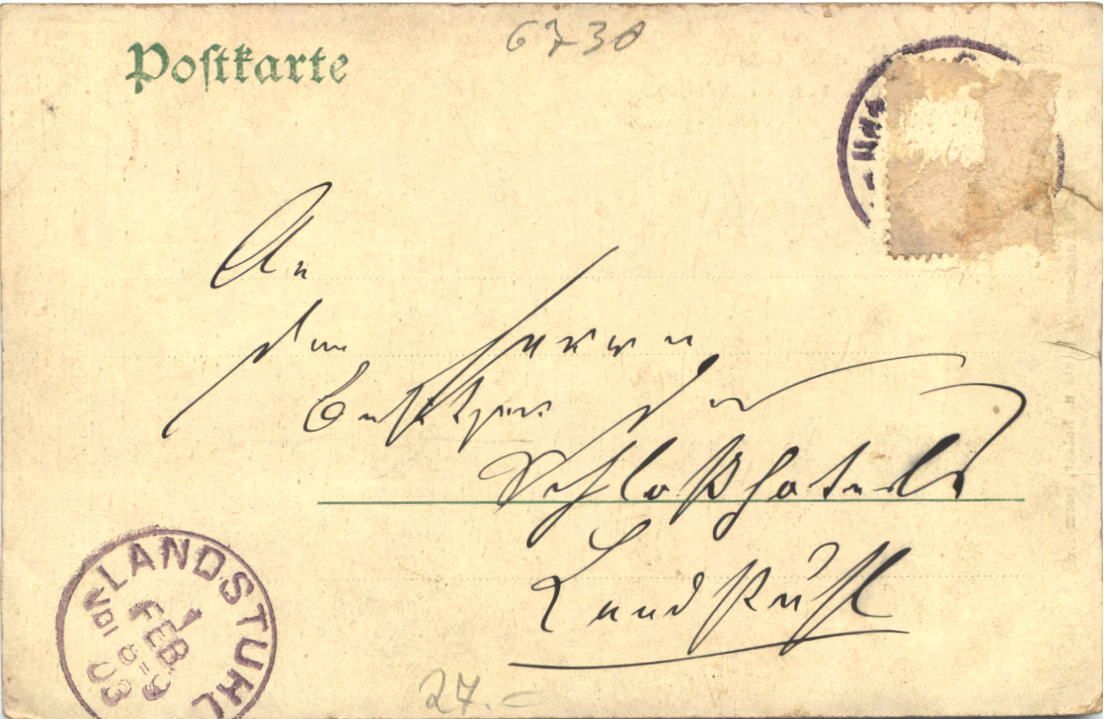 Postkarte
6730
An
den Herrn
Besitzer des
Schloßhotels
Landstuhl
LANDSTUHL
1
FEB.
8-9
03
27.-